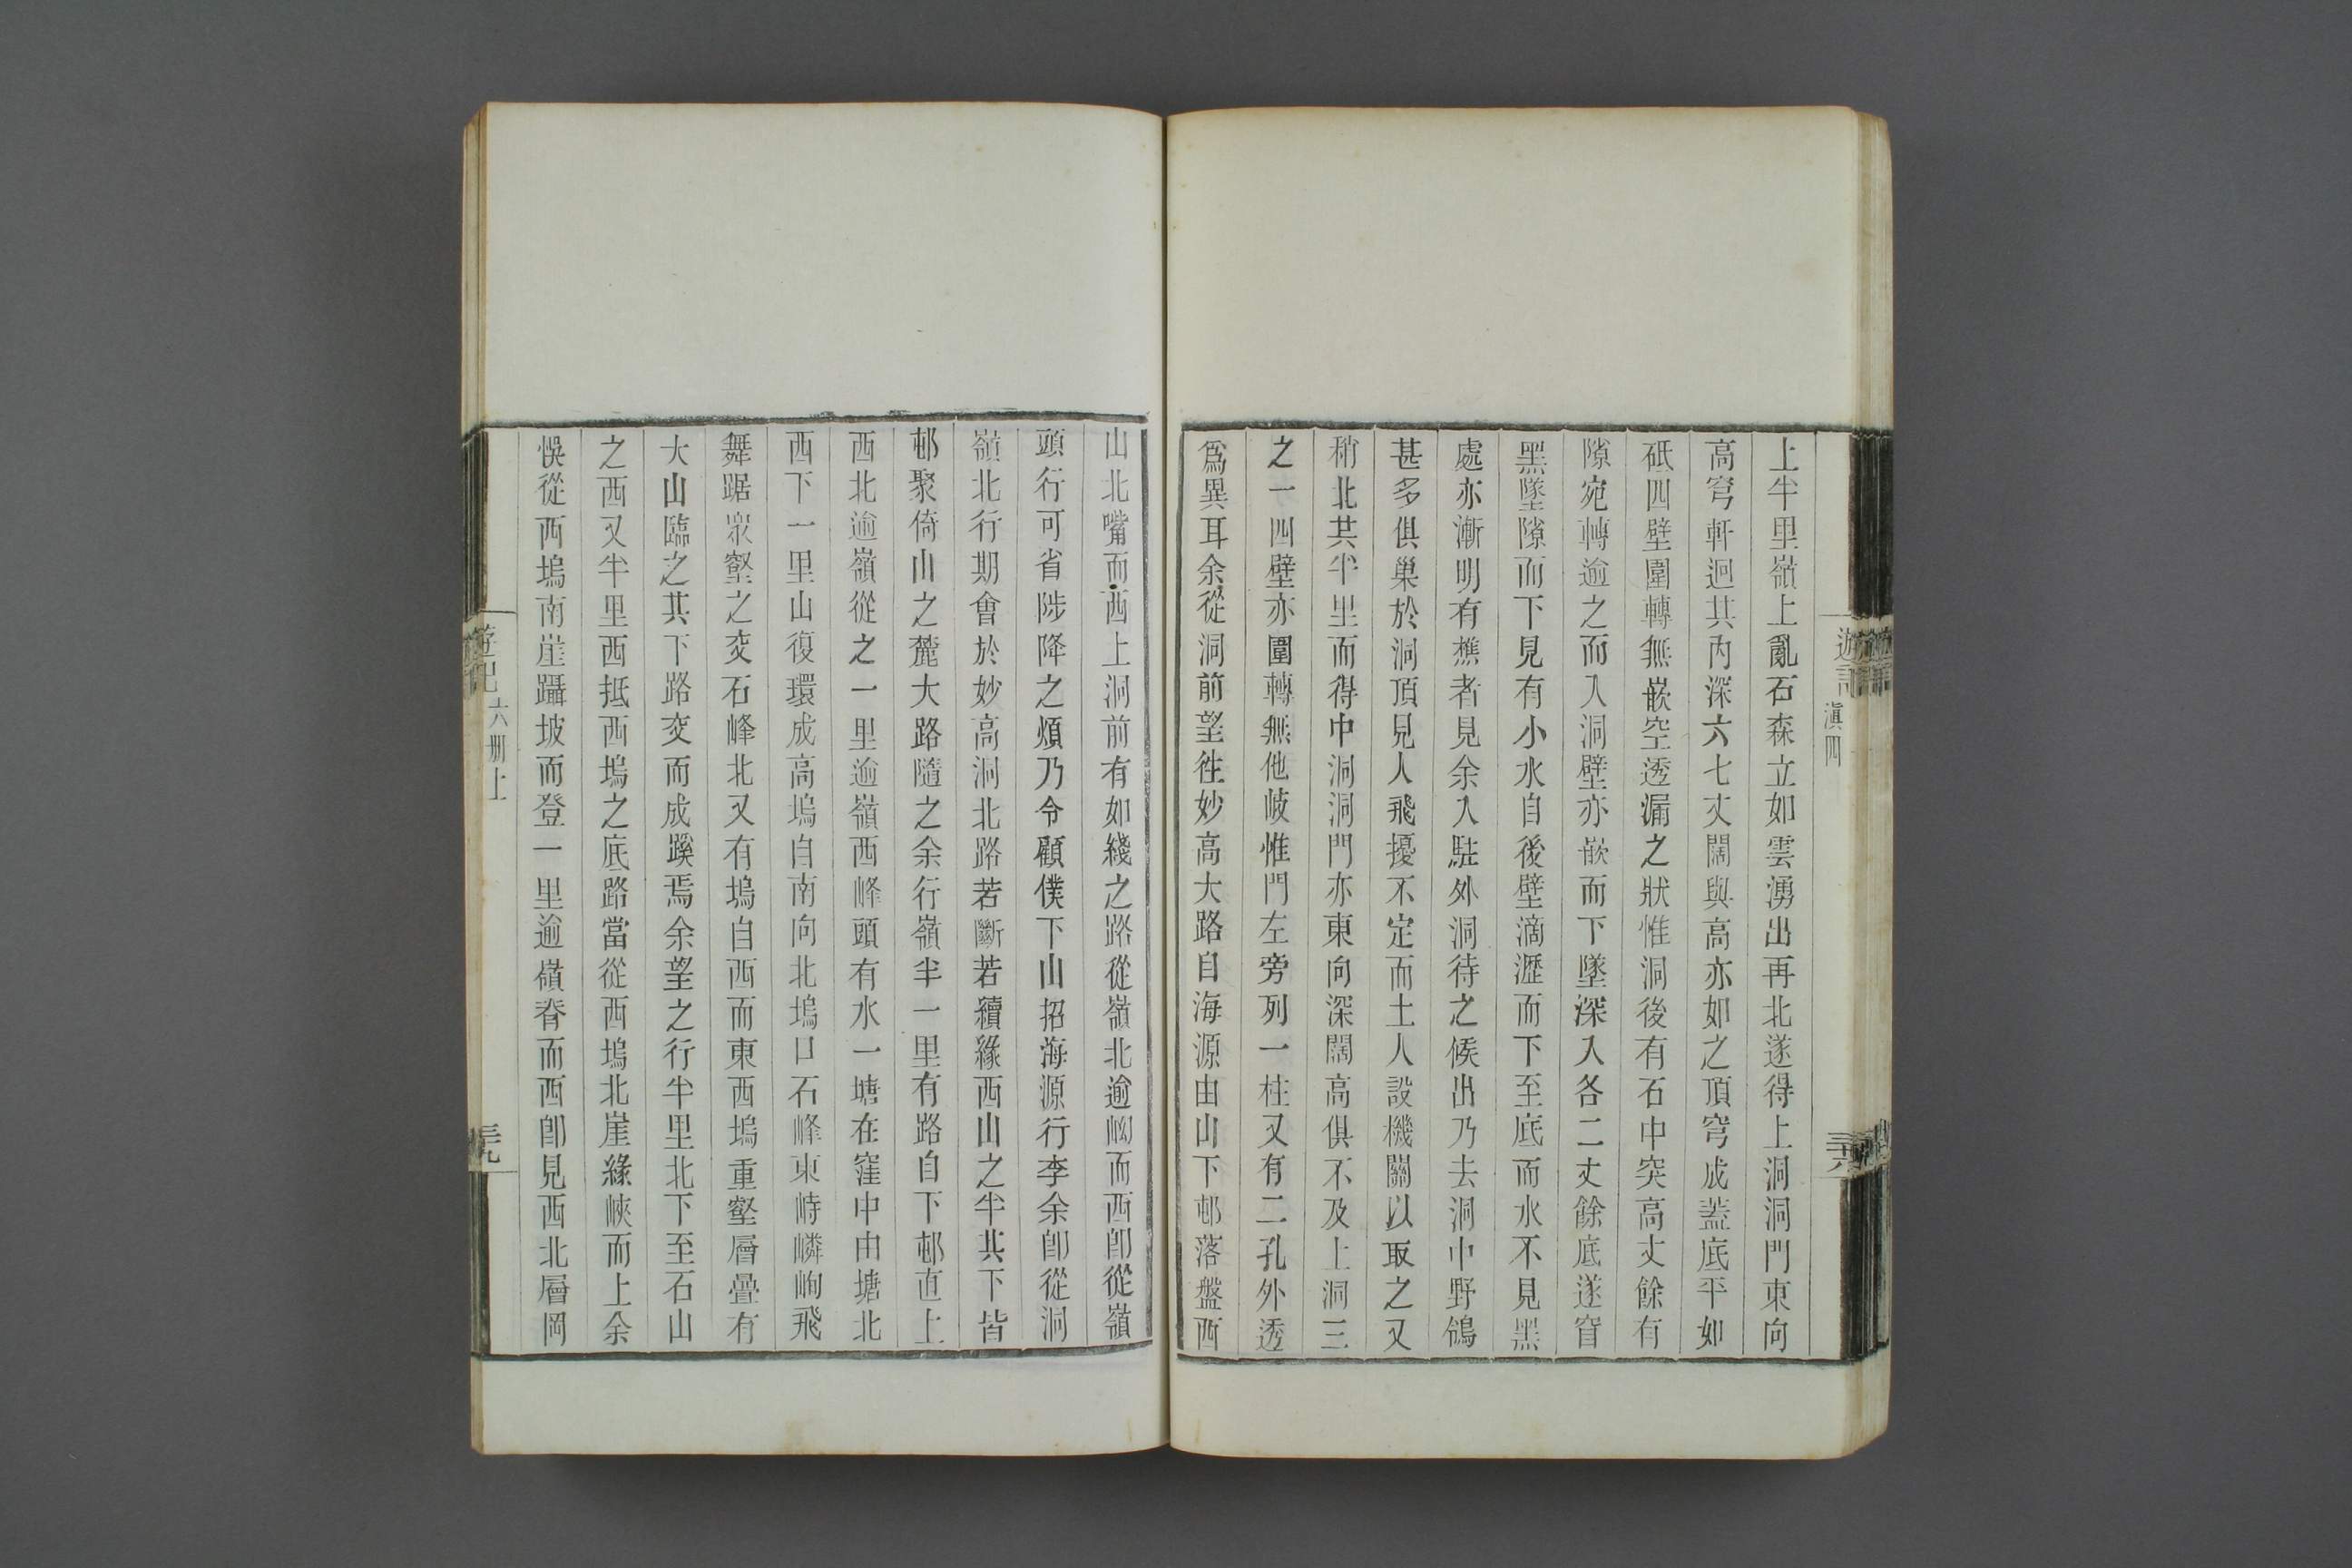 遊記
滇四
三六
上半里嶺上亂石森立如雲湧出再北遂得上洞洞門東向
高穹軒迥其內深六七丈闊與高亦如之頂穹成蓋底平如
砥四壁圍轉無嵌空透漏之狀惟洞後有石中突高丈餘有
隙宛轉逾之而入洞壁亦嵌而下墜深入各二丈餘底遂窅
黑墜隙而下見有小水自後壁滴瀝而下至底而水不見黑
處亦漸明有樵者見余入駐外洞待之候出乃去洞中野鴿
甚多俱巢於洞頂見人飛擾不定而土人設機關以取之又
稍北共半里而得中洞洞門亦東向深闊高俱不及上洞三
之一四壁亦圍轉無他岐惟門左旁列一柱又有二孔外透
爲異耳余從洞前望往妙高大路自海源由山下邨落盤西
山北嘴而西上洞前有如綫之路從嶺北逾坳而西卽從嶺
頭行可省陟降之煩乃令顧僕下山招海源行李余卽從洞
嶺北行期會於妙高洞北路若斷若續緣西山之半其下皆
邨聚倚山之麓大路隨之余行嶺半一里有路自下邨直上
西北逾嶺從之一里逾嶺西峰頭有水一塘在窪中由塘北
西下一里山復環成高塢自南向北塢口石峰東峙嶙峋飛
舞踞衆壑之交石峰北又有塢自西而東西塢重壑層疊有
大山臨之其下路交而成蹊焉余望之行半里北下至石山
之西又半里西抵西塢之底路當從西塢北崖緣峽而上余
悞從西塢南崖躡坡而登一里逾嶺脊而西卽見西北層岡
遊記
六册上
三九